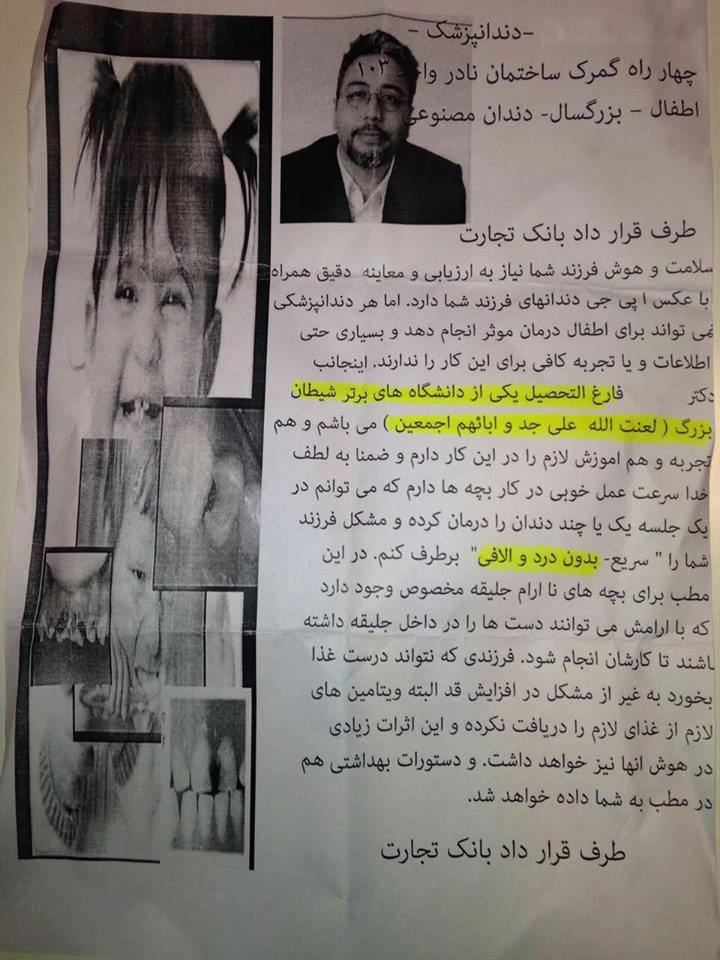 -دندانپزشک –
چهار راه گمرک ساختمان نادر واحد ۱۰۳
اطفال – بزرگسال- دندان مصنوعی
طرف قرار داد بانک تجارت
سلامت و هوش فرزند شما نیاز به ارزیابی و معاینه دقیق همراه
با عکس ا پی جی دندانهای فرزند شما دارد. اما هر دندانپزشکی
نمی تواند برای اطفال درمان موثر انجام دهد و بسیاری حتی
اطلاعات و یا تجربه کافی برای این کار را ندارند. اینجانب
دکتر فارغ التحصیل یکی از دانشگاه های برتر شیطان
بزرگ ( لعنت الله علی جد و ابائهم اجمعین ) می باشم و هم
تجربه و هم اموزش لازم را در این کار دارم و ضمنا به لطف
خدا سرعت عمل خوبی در کار بچه ها دارم که می توانم در
یک جلسه یک یا چند دندان را درمان کرده و مشکل فرزند
شما را " سریع- بدون درد و الافی" برطرف کنم. در این
مطب برای بچه های نا ارام جلیقه مخصوص وجود دارد
که با ارامش می توانند دست ها را در داخل جلیقه داشته
باشند تا کارشان انجام شود. فرزندی که نتواند درست غذا
بخورد به غیر از مشکل در افزایش قد البته ویتامین های
لازم از غذای لازم را دریافت نکرده و این اثرات زیادی
در هوش انها نیز خواهد داشت. و دستورات بهداشتی هم
در مطب به شما داده خواهد شد.
طرف قرار داد بانک تجارت